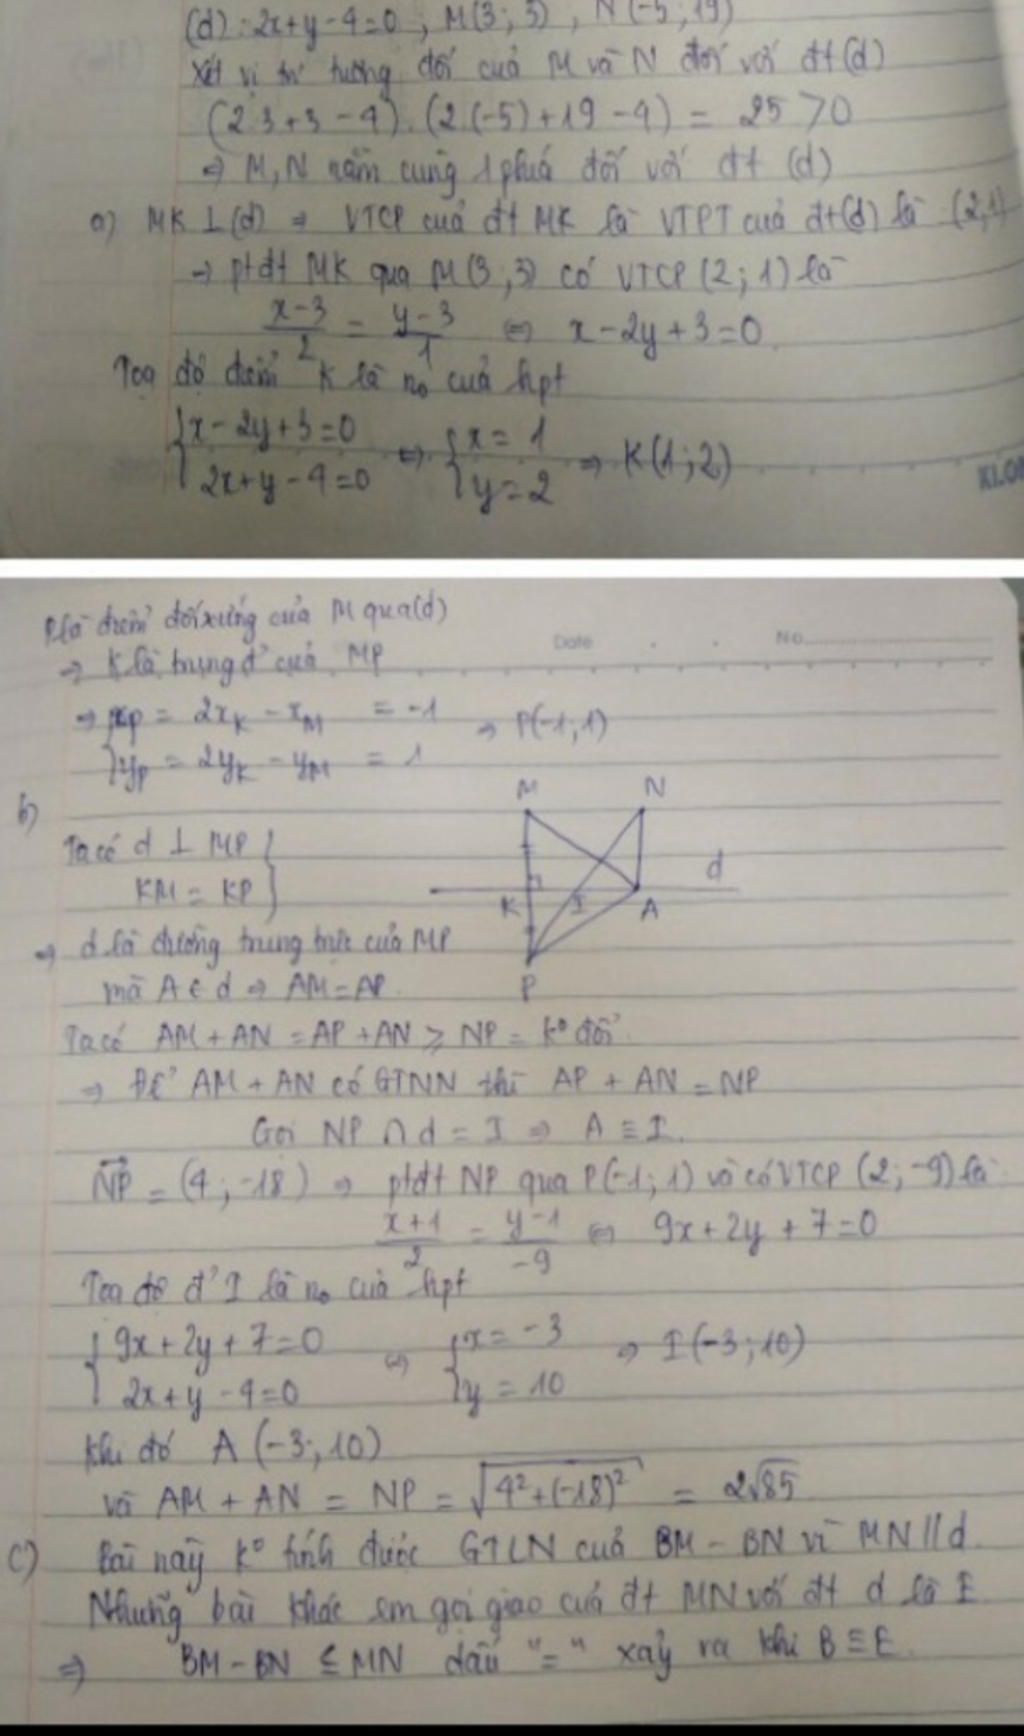 (d): 2x+y-4=0, M(3; 3), N(-5; 19)
Xét vị trí tương đối của M và N đối với đt (d)
(2.3+3-4).(2.(-5)+19-4) = 25 > 0
⇒ M, N nằm cùng 1 phía đối với đt (d)
a) MK ⊥ (d) ⇒ VTCP của đt MK là VTPT của đt(d) là (2;1)
→ ptđt MK qua M(3;3) có VTCP (2; 1) là
x-3/2 = y-3/1 ⇔ x-2y+3=0
Toạ độ điểm K là no của hpt
{x-2y+3=0 ⇔ {x=1 ⇒ K(1;2)
2x+y-4=0 y=2
KI.O
P là điểm đối xứng của M qua(d)
Date No
→ K là trung đ' của MP
⇒ {xP = 2xK - xM = -1 → P(-1;1)
yP = 2yK - yM = 1
b)
M N
Ta có d ⊥ MP }
KM = KP
d
K I A
⇒ d là đường trung trực của MP
P
mà A ∈ d ⇒ AM=AP.
Ta có AM + AN = AP + AN ≥ NP = ko đổi
⇒ Để AM + AN có GTNN thì AP + AN = NP
Gọi NP ∩ d = I ⇒ A ≡ I.
NP = (4; -18) ⇒ ptđt NP qua P(-1; 1) và có VTCP (2; -9) là
x+1/2 = y-1/-9 ⇔ 9x+2y+7=0
Toạ độ đ' I là no của hpt
{9x+2y+7=0 ⇔ {x=-3 ⇒ I(-3;10)
2x+y-4=0 y=10
Khi đó A (-3; 10)
và AM + AN = NP = √4²+(-18)² = 2√85
c) Bài này ko tính được GTLN của BM - BN vì MN//d.
Những bài khác em gọi giao của đt MN với đt d là E
⇒ BM-BN ≤ MN dấu "=" xảy ra khi B≡E.